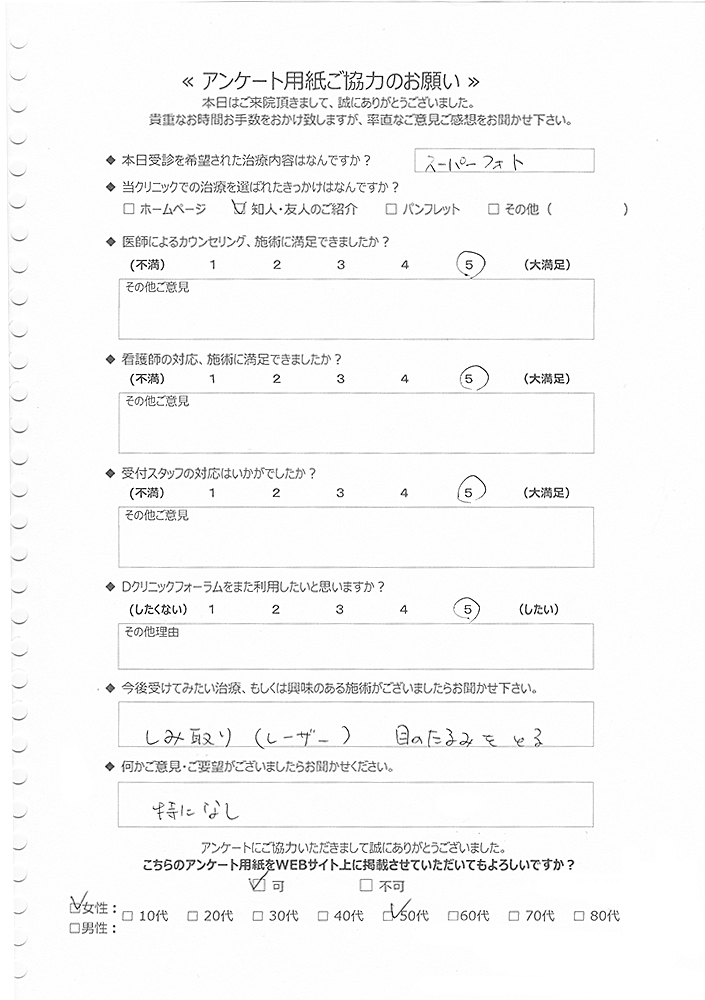 ≪ アンケート用紙ご協力のお願い ≫
本日はご来院頂きまして、誠にありがとうございました。
貴重なお時間お手数をおかけ致しますが、率直なご意見ご感想をお聞かせ下さい。
❖ 本日受診を希望された治療内容はなんですか？ スーパーフォト
❖ 当クリニックでの治療を選ばれたきっかけはなんですか？
□ ホームページ ☑ 知人・友人のご紹介 □ パンフレット □ その他（ ）
❖ 医師によるカウンセリング、施術に満足できましたか？
(不満) 1 2 3 4 5 (大満足)
その他ご意見
❖ 看護師の対応、施術に満足できましたか？
(不満) 1 2 3 4 5 (大満足)
その他ご意見
❖ 受付スタッフの対応はいかがでしたか？
(不満) 1 2 3 4 5 (大満足)
その他ご意見
❖ Dクリニックフォーラムをまた利用したいと思いますか？
(したくない) 1 2 3 4 5 (したい)
その他理由
❖ 今後受けてみたい治療、もしくは興味のある施術がございましたらお聞かせ下さい。
しみ取り (レーザー) 目のたるみをとる
❖ 何かご意見・ご要望がございましたらお聞かせください。
特になし
アンケートにご協力いただきまして誠にありがとうございました。
こちらのアンケート用紙をWEBサイト上に掲載させていただいてもよろしいですか？
☑ 可 □ 不可
☑女性： □ 10代 □ 20代 □ 30代 □ 40代 ☑50代 □60代 □ 70代 □ 80代
□男性：